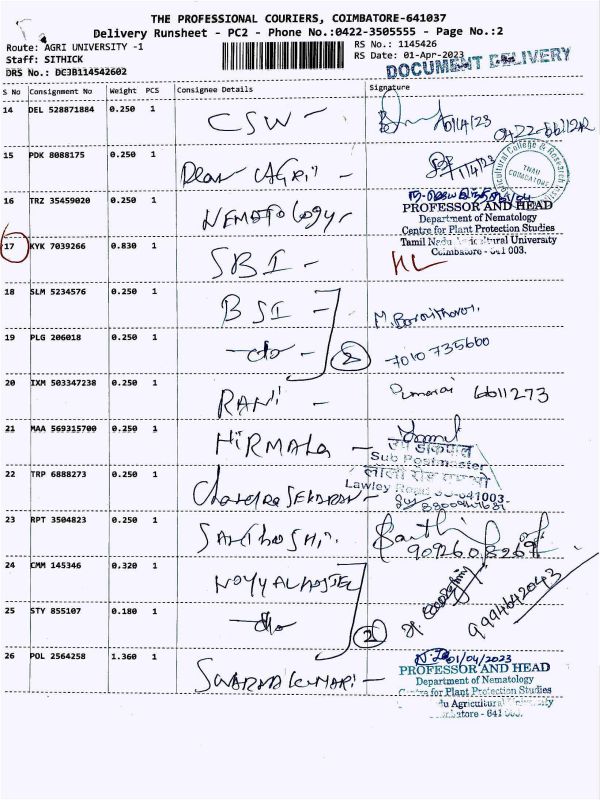 THE PROFESSIONAL COURIERS, COIMBATORE-641037
Delivery Runsheet - PC2 - Phone No.:0422-3505555 - Page No.:2
Route: AGRI UNIVERSITY -1
RS No.: 1145426
Staff: SITHICK
RS Date: 01-Apr-2023
DRS No.: DC3B114542602
DOCUMENT DELIVERY
S No Consignment No Weight PCS Consignee Details Signature
14 DEL 528871884 0.250 1 CSW -
15 PDK 8088175 0.250 1 Dean
Agricultural College & Research
TNAU
COIMBATORE
16 TRZ 35459020 0.250 1 NEMATOlogy -
PROFESSOR AND HEAD
Department of Nematology
Centre for Plant Protection Studies
Tamil Nadu Agricultural University
Coimbatore - 641 003.
17 KYK 7039266 0.830 1 SBI - HL
18 SLM 5234576 0.250 1 BSI -
19 PLG 206018 0.250 1 do - 2 7010 735600
20 IXM 503347238 0.250 1 RANI - 6611273
21 MAA 569315700 0.250 1 NIRMALA -
उप डाकपाल
Sub Postmaster
लाली रोड
Lawley Road 641003
22 TRP 6888273 0.250 1
23 RPT 3504823 0.250 1
24 CMM 145346 0.320 1
25 STY 855107 0.180 1 do 2 9994642043
26 POL 2564258 1.360 1 SWARNAKUMARI - 01/04/2023
PROFESSOR AND HEAD
Department of Nematology
Centre for Plant Protection Studies
Agricultural
641 003.